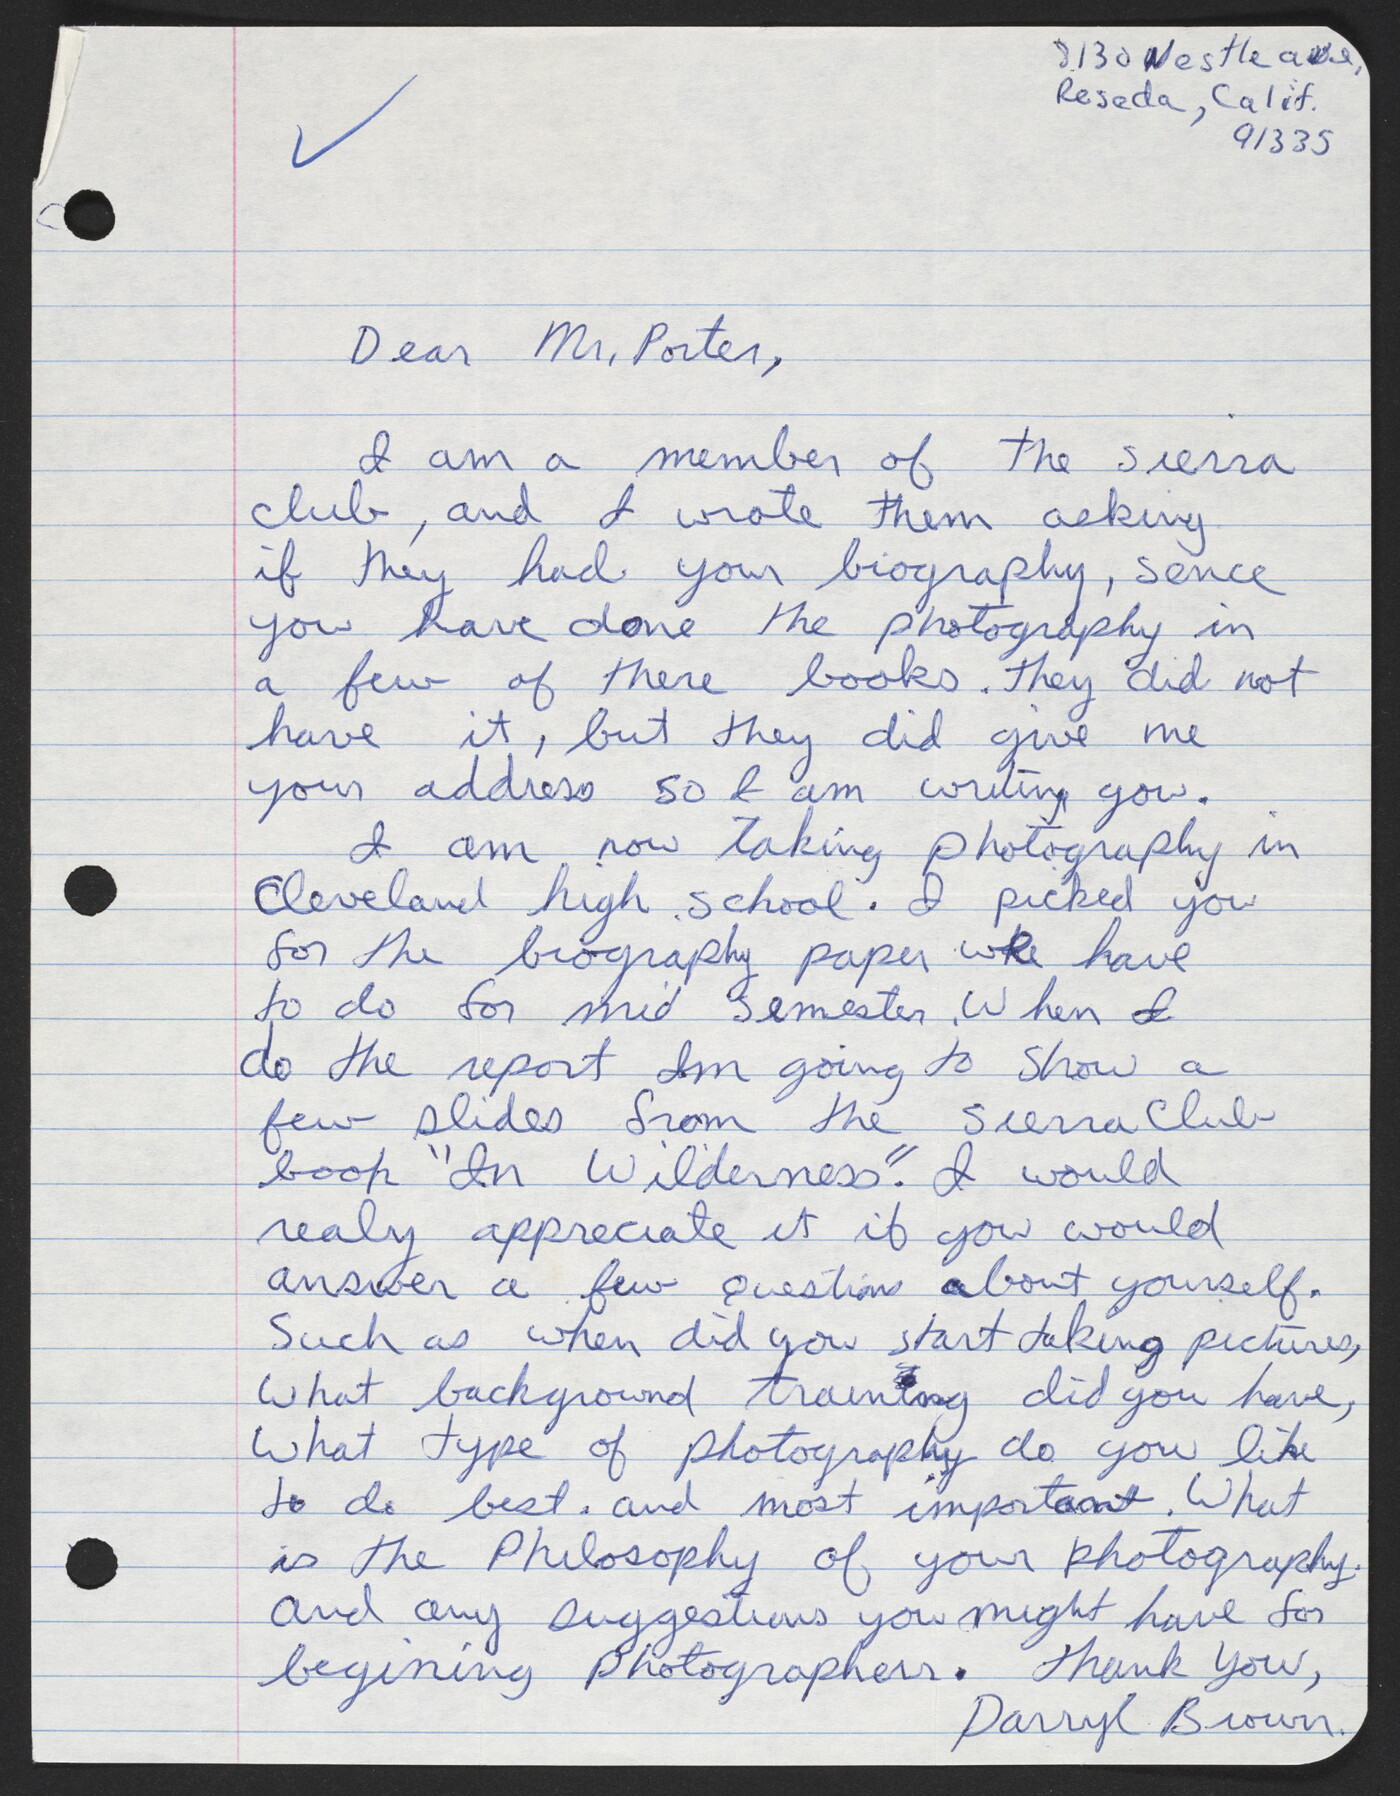 8130 Nestle ave,
Reseda, Calif.
91335
Dear Mr. Porter,
I am a member of the sierra
club, and I wrote them asking
if they had your biography, sence
you have done the photography in
a few of there books. They did not
have it, but they did give me
your address so I am writing you.
I am now taking photography in
Cleveland high school. I picked you
for the biography paper we have
to do for mid semester. When I
do the report Im going to show a
few slides from the sierra Club
book "In Wilderness". I would
realy appreciate it if you would
answer a few questions about yourself.
Such as when did you start taking pictures,
What background training did you have,
What type of photography do you like
to do best. and most important. What
is the Philosophy of your photography.
and any suggestions you might have for
begining photographers. Thank You,
Darryl Brown.